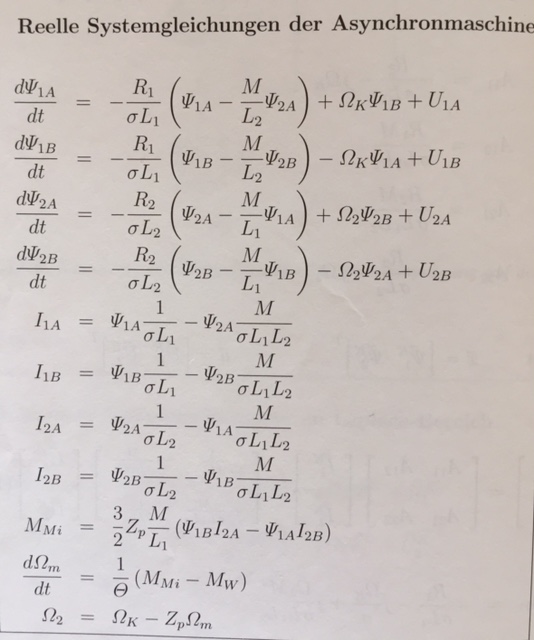 Reelle Systemgleichungen der Asynchronmaschine
dΨ₁A/dt = −R₁/(σL₁) (Ψ₁A − M/L₂ Ψ₂A) + Ω_K Ψ₁B + U₁A
dΨ₁B/dt = −R₁/(σL₁) (Ψ₁B − M/L₂ Ψ₂B) − Ω_K Ψ₁A + U₁B
dΨ₂A/dt = −R₂/(σL₂) (Ψ₂A − M/L₁ Ψ₁A) + Ω₂ Ψ₂B + U₂A
dΨ₂B/dt = −R₂/(σL₂) (Ψ₂B − M/L₁ Ψ₁B) − Ω₂ Ψ₂A + U₂B
I₁A = Ψ₁A 1/(σL₁) − Ψ₂A M/(σL₁L₂)
I₁B = Ψ₁B 1/(σL₁) − Ψ₂B M/(σL₁L₂)
I₂A = Ψ₂A 1/(σL₂) − Ψ₁A M/(σL₁L₂)
I₂B = Ψ₂B 1/(σL₂) − Ψ₁B M/(σL₁L₂)
M_Mi = 3/2 Z_p M/L₁ (Ψ₁B I₂A − Ψ₁A I₂B)
dΩ_m/dt = 1/Θ (M_Mi − M_W)
Ω₂ = Ω_K − Z_p Ω_m